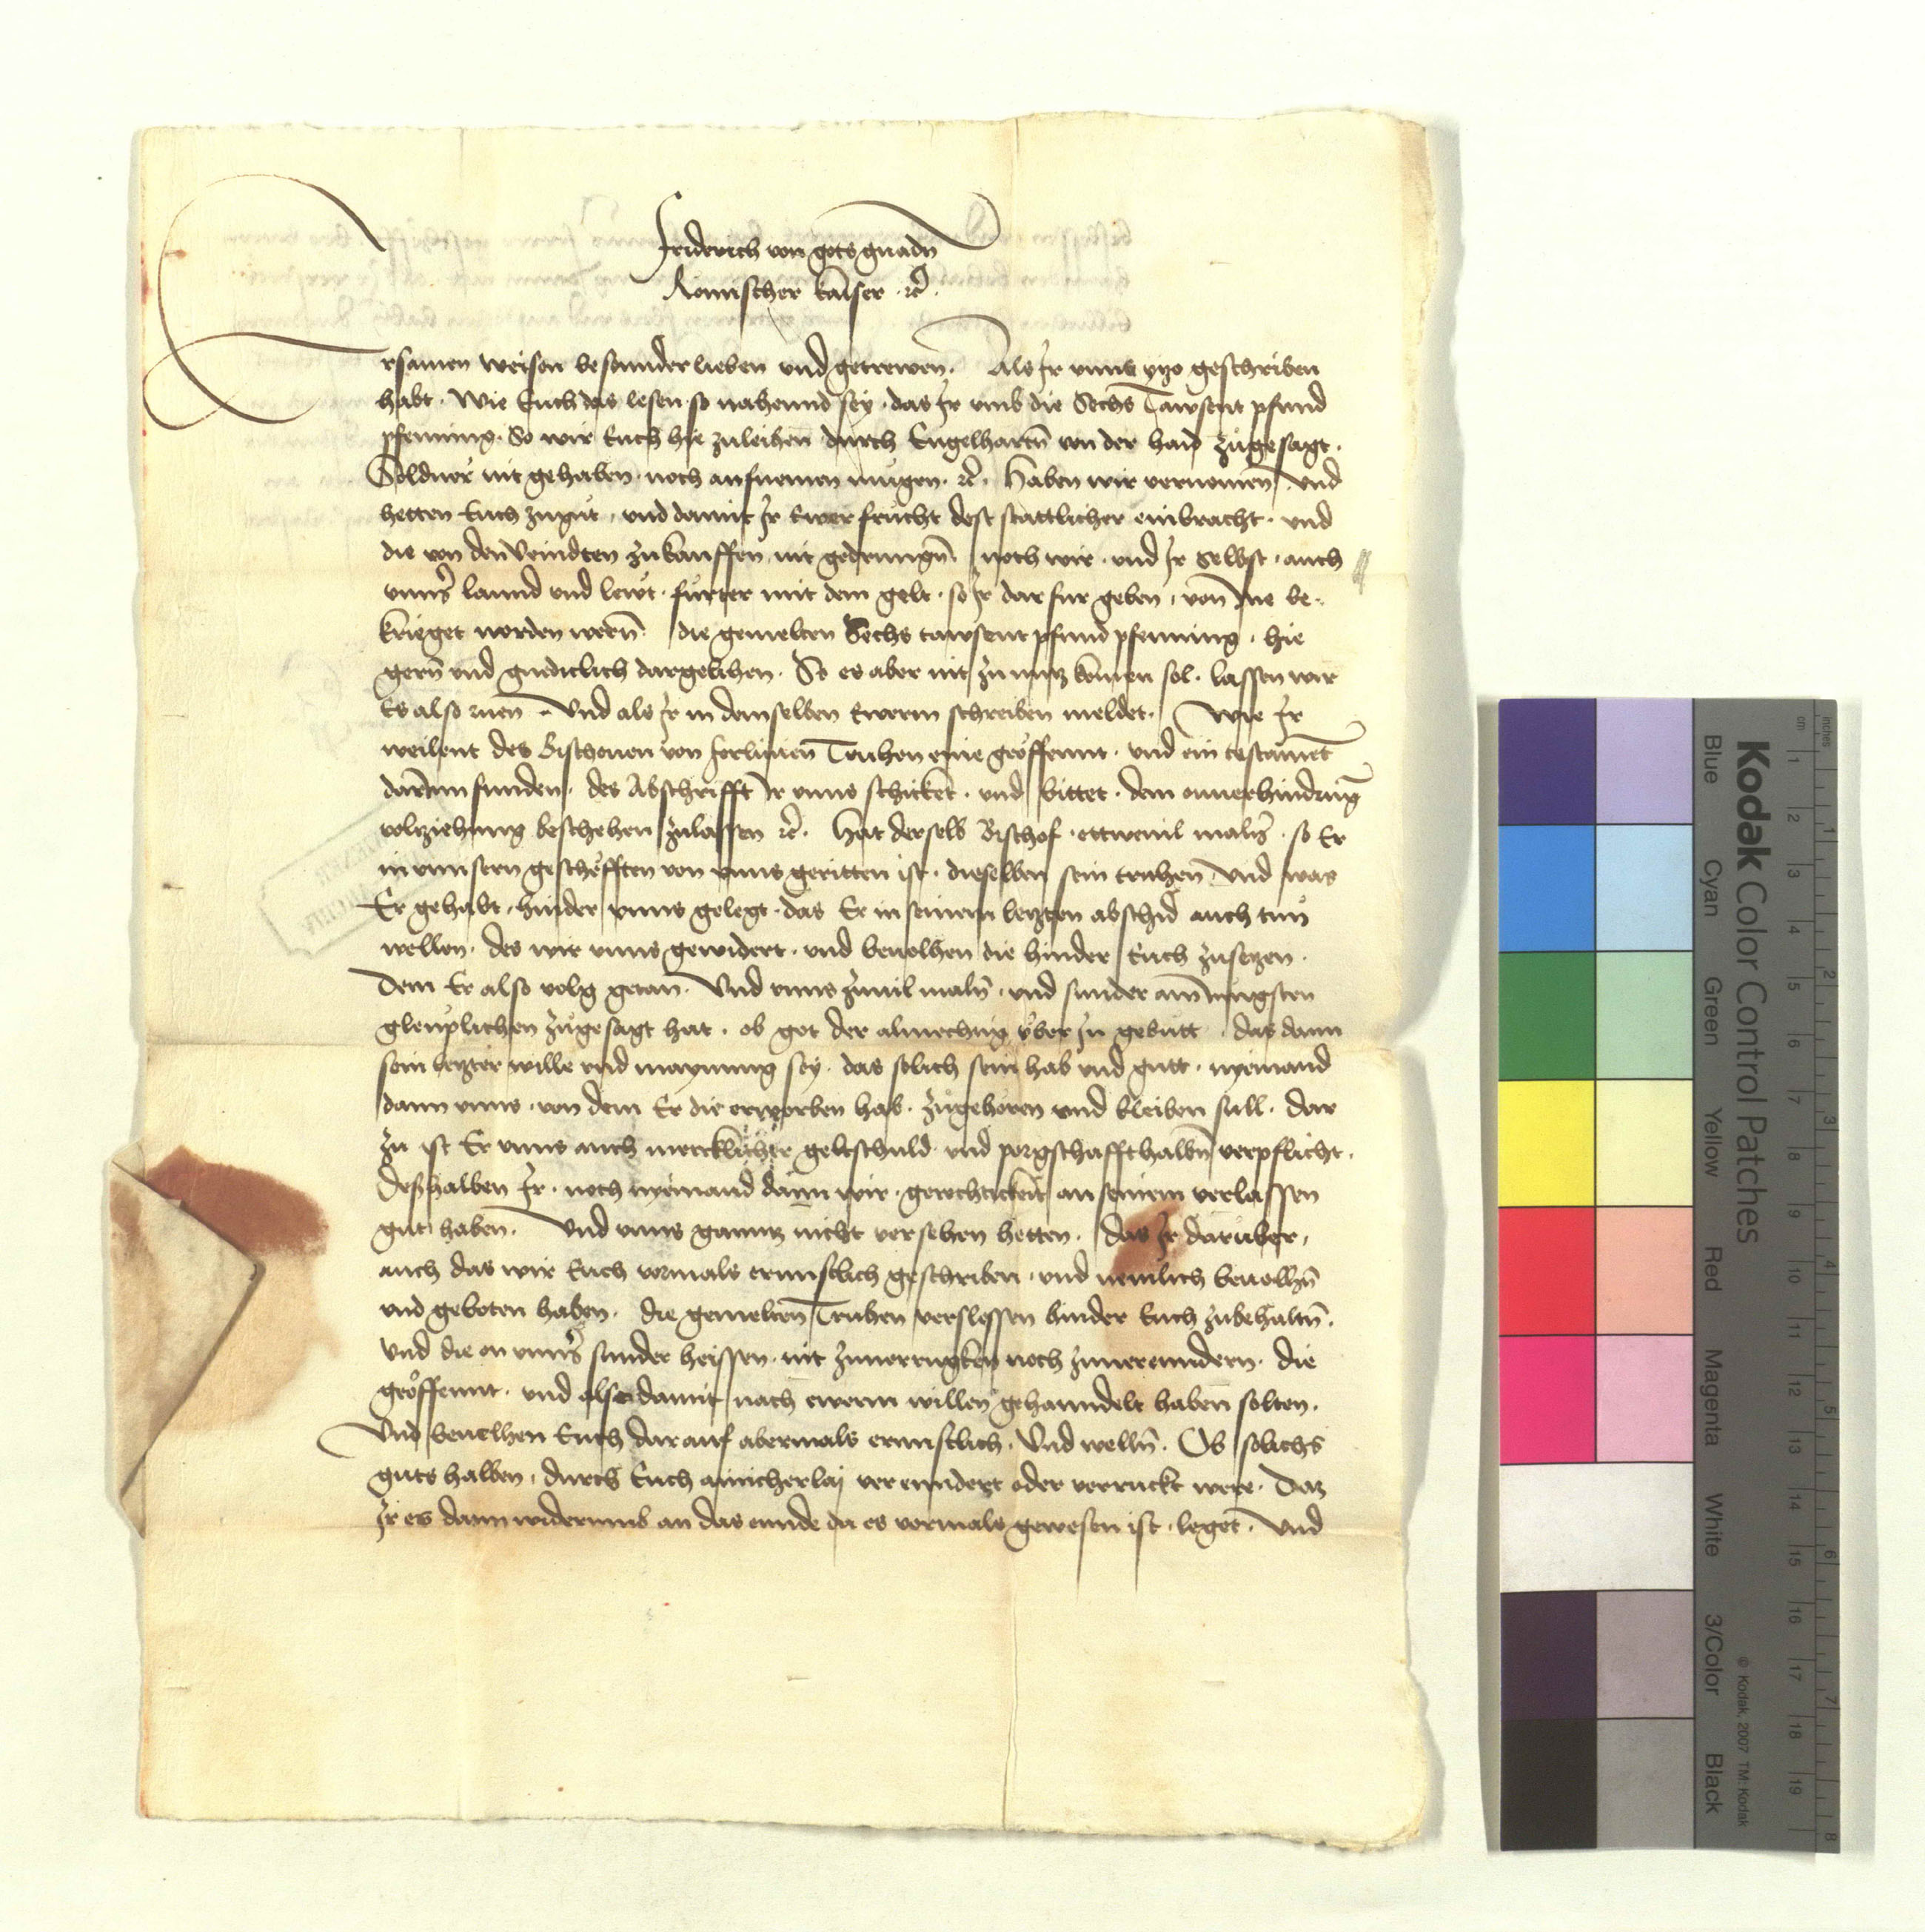 Friderich von gots gnadn
Romischer kaiser ꝛc̃.
Ersamen weisen besonnder lieben und getrewen. Als Ir unns yzo geschriben
habt. Wie Euch das lesen so nahennd sey. das Ir umb die Sechs Tawsent phund
phenning. So wir Euch hie zuleihen durch Engelhartn̄ von der haid zugesagt.
Soldner nit gehaben. noch aufnemen mugen. ꝛc̃. Haben wir vernomen. Und
hetten Euch zugut, und damit Ir Ewer frucht dest stattlicher einbracht. und
die von den Veindten zukauffen nit gedrungn̄ noch wir. und Ir selbst. auch
unns̄ lannd und lewt. furter mit dem gelt. so Ir dar fur geben, von Ine be-
krieget worden wern̄. die gemelten Sechs tawsent phund phenning, hie
gern̄ und gnediclich dargelihen. So es aber nit zu nutz komen sol. lassen wir
Es also ruen. Und als Ir in demselben Ewerm schreiben meldet. Wie Ir
weilent des Bischouen von Forlinen Truhen eine geöffennt. und ein testamēt
darInn funden. des Abschrifft Ir unns schicket. und bittet. dem on verhindrung
volziehung beschehen zulassen ꝛc̃. Hat derselb Bischof. ettweuil maln̄. so Er
in unnsern geschefften von unns geritten ist. dieselben sein truhen und was
Er gehabt, hinder unns gelegt. das Er in seinem letzten abschid auch tun
wellen. des wir unns gewidert. und beuolhen die hinder Euch zusetzen.
Dem Er also volg getan. Und unns zuuil maln̄. und sunder am Jungsten
gleuplichen zugesagt hat. ob got der almechtig uber In gebutt. das dann
sein letzter wille und maynung sey. das solich sein hab und gutt. nyemand
dann unns. von dem Er die erworben hab. zugehören und bleiben sull. Dar
zu ist Er unns auch mercklicher geltschuld. und porgschafft halbn̄ verpflicht.
Deßhalben Ir. noch nyemand dann wir. gerechtickeit an seinem verlassen
gut haben. Und unns ganntz nicht versehen hetten. das Ir daruber,
auch das wir Euch vormals ernnstlich geschriben. und nemlich beuolhn̄
und geboten haben. die gemelten Truhen verslossen hinder Euch zubehaltn̄.
und die on unns̄ sunder heissen. nit zuuerrugken noch zuuerenndern. die
geöffennt. und also damit nach ewerm willen gehanndelt haben solten.
Und beuelhen Euch darauf abermals ernnstlich. Und welln̄. Ob solichs
guts halben, durch Euch ainicherlai verenndert oder verruckt were. Daz
Ir es dann widerumb an das ennde da es vormals gewesen ist. leget. Und
Kodak Color Control Patches
Blue Cyan Green Yellow Red Magenta White 3/Color Black
© Kodak, 2007 TM: Kodak
cm 1 2 3 4 5 6 7 8 9 10 11 12 13 14 15 16 17 18 19
inches 1 2 3 4 5 6 7 8